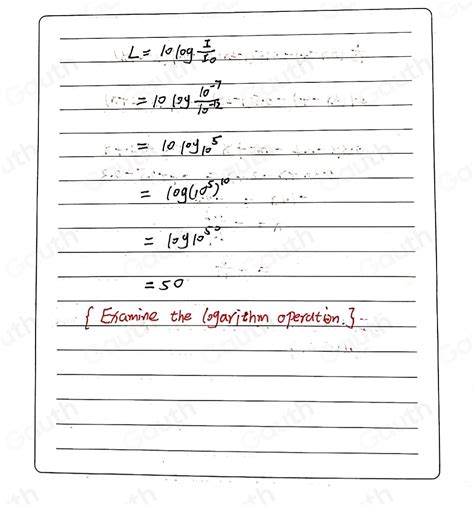 L = 10 log I/I₀
= 10 log 10⁻⁷/10⁻¹²
= 10 log 10⁵
= log(10⁵)¹⁰
= log 10⁵⁰
= 50
{ Examine the logarithm operation. }
Gauth